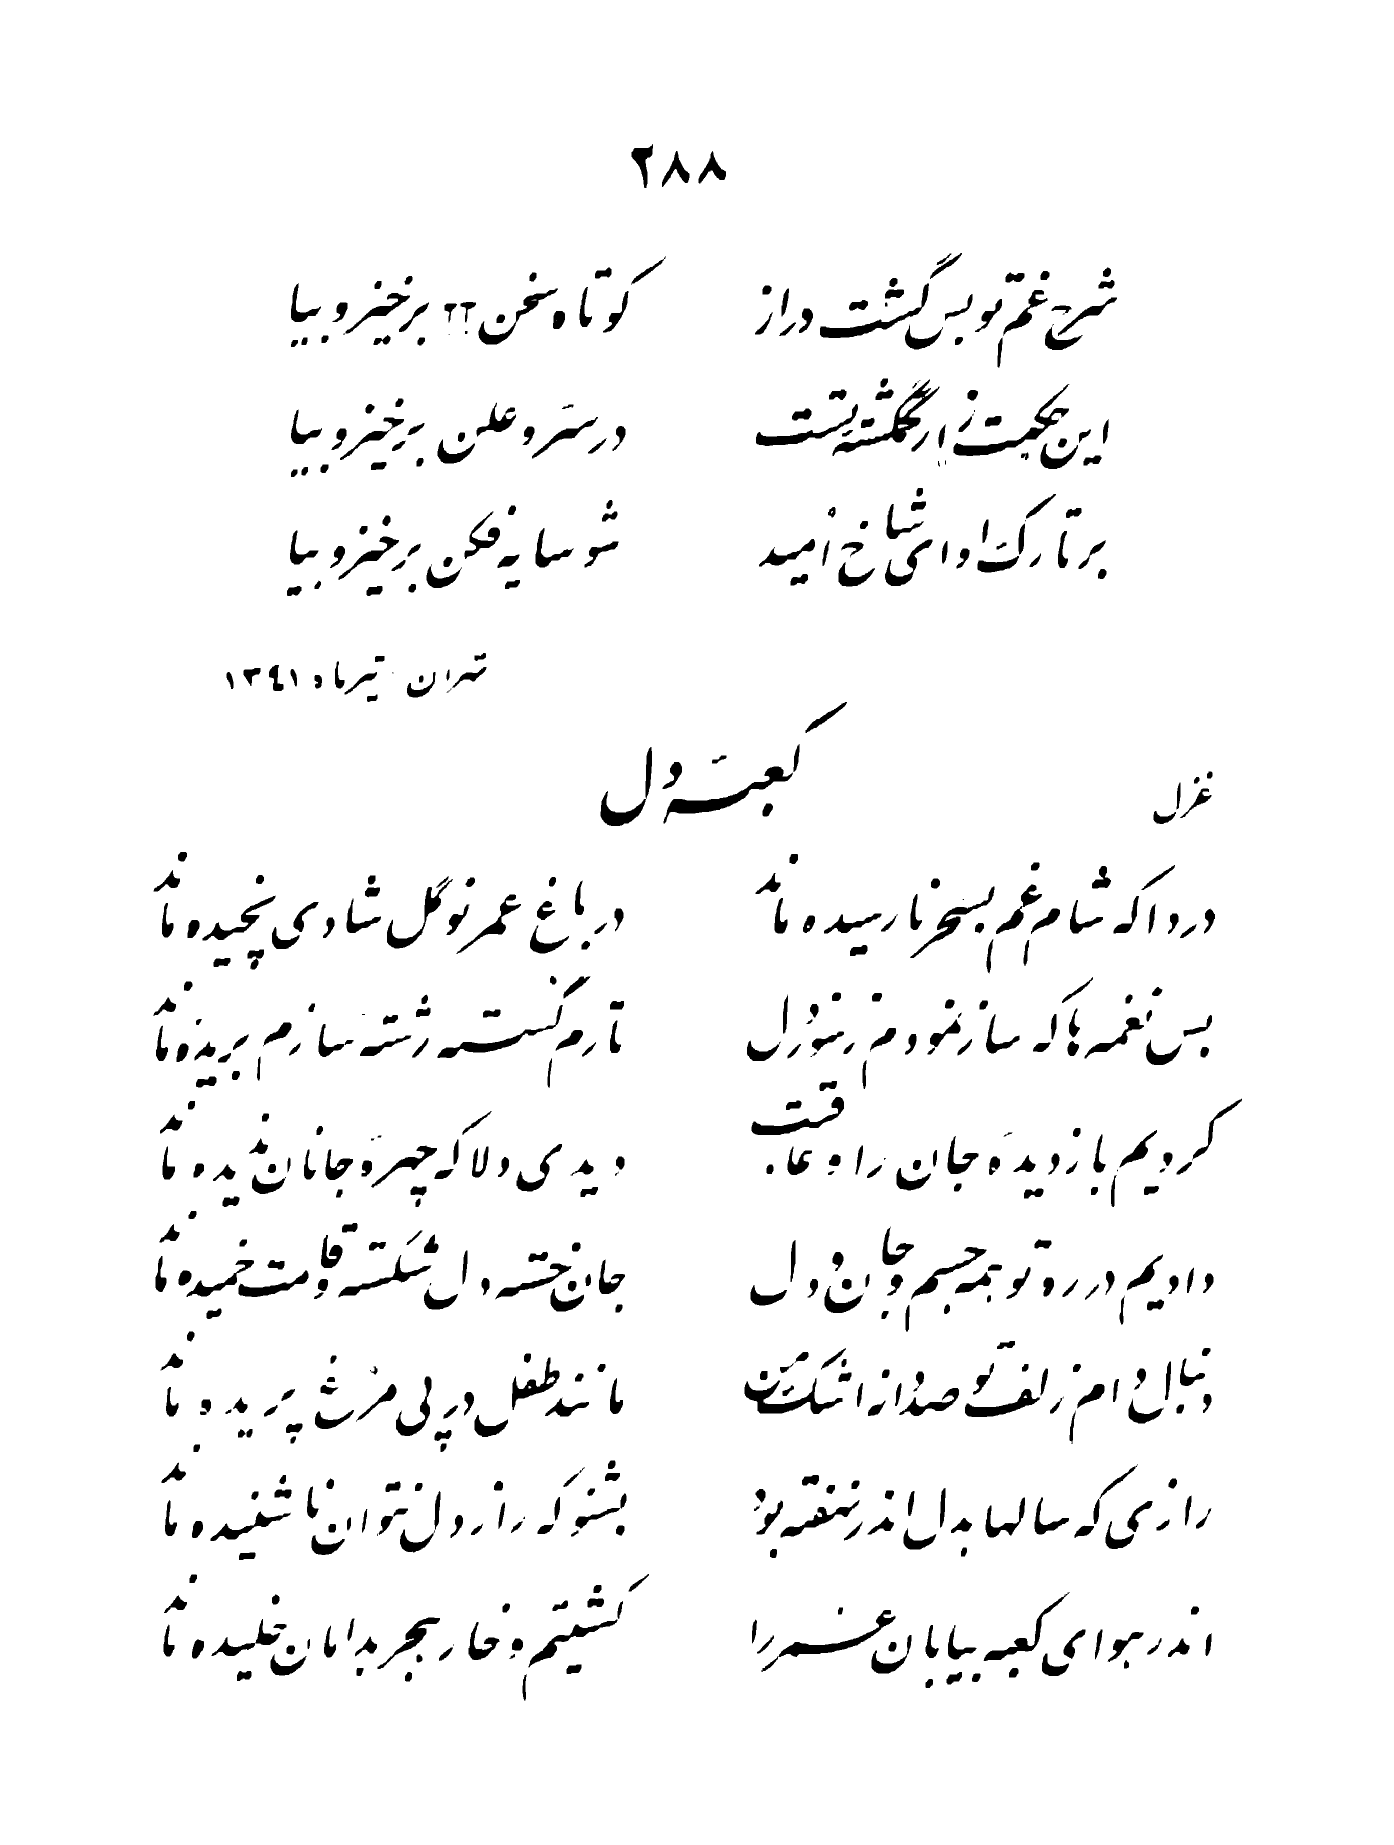 ۲۸۸
شرح غم تو بس گشت دراز کوتاه سخن برخیز و بیا
این حکمت زار گمگشته تست در سرّ و علن برخیز و بیا
بر تارک او ای شاخ امید شو سایه فکن برخیز و بیا
تهران تیرماه ۱۳۴۱
کعبهٔ دل
غزل
دردا که شام غم بسحر نارسیده ماند در باغ عمر نوگل شادی نچیده ماند
بس نغمه ها که ساز نمودم ز شور دل تارم گسسته رشتهٔ سازم بریده ماند
کردیم باز دیدهٔ جان را و عاقبت دیدی دلا که چهرهٔ جانان ندیده ماند
دادیم در ره تو همه جسم و جان و دل جان خسته دل شکسته و قامت خمیده ماند
دنبال دام زلف تو صد دانه اشک من مانند طفل در پی مرغ پریده ماند
رازی که سالها بدل اندر نهفته بود بشنو که راز دل نتوان ناشنیده ماند
اندر هوای کعبه بیابان عمر را گشتیم و خار هجر بدامان خلیده ماند